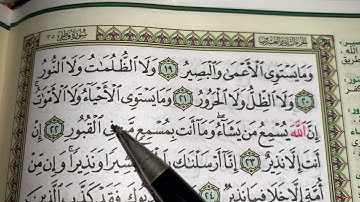 سورة فاطر ٣٥
وَمَا يَسْتَوِى ٱلْأَعْمَىٰ وَٱلْبَصِيرُ ١٩ وَلَا ٱلظُّلُمَـٰتُ وَلَا ٱلنُّورُ
٢٠ وَلَا ٱلظِّلُّ وَلَا ٱلْحَرُورُ ٢١ وَمَا يَسْتَوِى ٱلْأَحْيَآءُ وَلَا ٱلْأَمْوَٰتُ
إِنَّ ٱللَّهَ يُسْمِعُ مَن يَشَآءُ وَمَآ أَنتَ بِمُسْمِعٍ مَّن فِى ٱلْقُبُورِ ٢٢ إِنْ
أَنتَ إِلَّا نَذِيرٌ ٢٣ إِنَّآ أَرْسَلْنَـٰكَ بَشِيرًا وَنَذِيرًا وَإِن مِّنْ
أُمَّةٍ إِلَّا خَلَا فِيهَا نَذِيرٌ ٢٤ فَقَدْ كَذَّبَ ٱلَّذِينَ